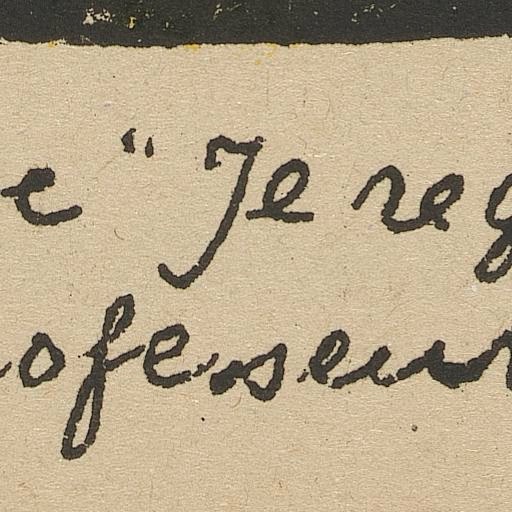 e "Je reg
ofesseur